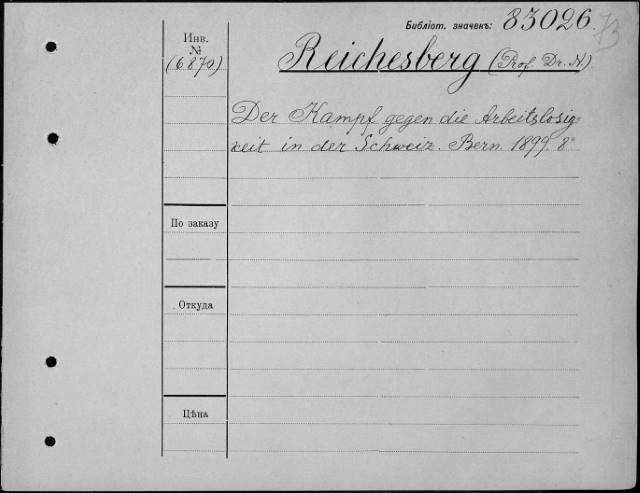 Библіот. значекъ: 83026
Инв.
№
(6870)
Reichesberg (Prof. Dr. N.)
Der Kampf gegen die Arbeitslosig-
keit in der Schweiz. Bern. 1899. 8°
По заказу
Откуда
Цѣна